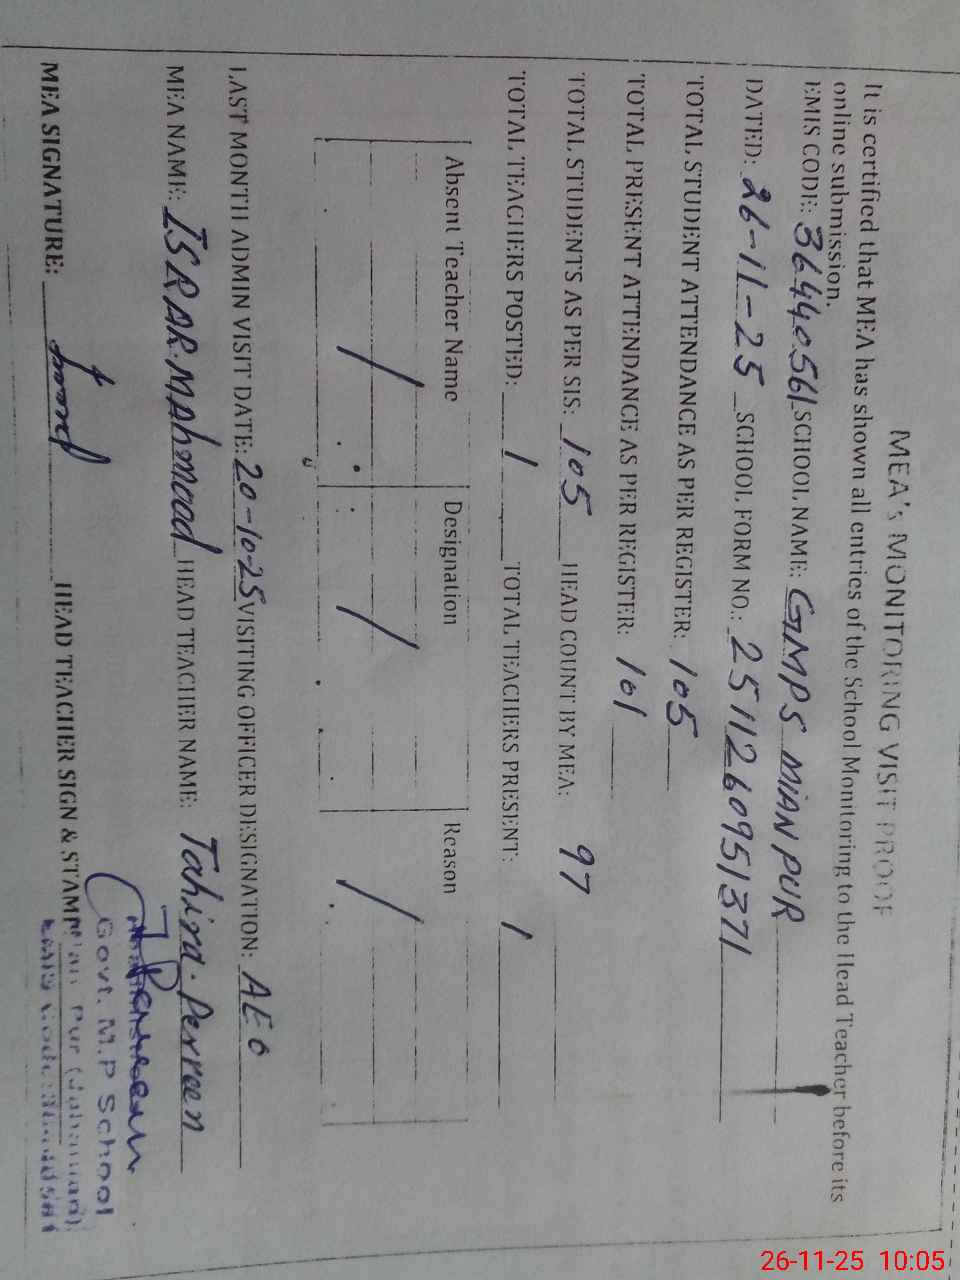 MEA's MONITORING VISIT PROOF
It is certified that MEA has shown all entries of the School Monitoring to the Head Teacher before its
online submission.
EMIS CODE: 36440561 SCHOOL NAME: GMPS MIAN PUR
DATED: 26-11-25 SCHOOL FORM NO.: 2511260951371
TOTAL STUDENT ATTENDANCE AS PER REGISTER: 105
TOTAL PRESENT ATTENDANCE AS PER REGISTER: 101
TOTAL STUDENTS AS PER SIS: 105 HEAD COUNT BY MEA: 97
TOTAL TEACHERS POSTED: 1 TOTAL TEACHERS PRESENT: 1
Absent Teacher Name Designation Reason
/ / /
LAST MONTH ADMIN VISIT DATE: 20-10-25 VISITING OFFICER DESIGNATION: AEO
MEA NAME: ISRAR MAhmood HEAD TEACHER NAME: Tahira Perveen
MEA SIGNATURE: HEAD TEACHER SIGN & STAMP
Govt. M.P School
Mian Pur (Jahanian)
Emis Code: 36440561
26-11-25 10:05